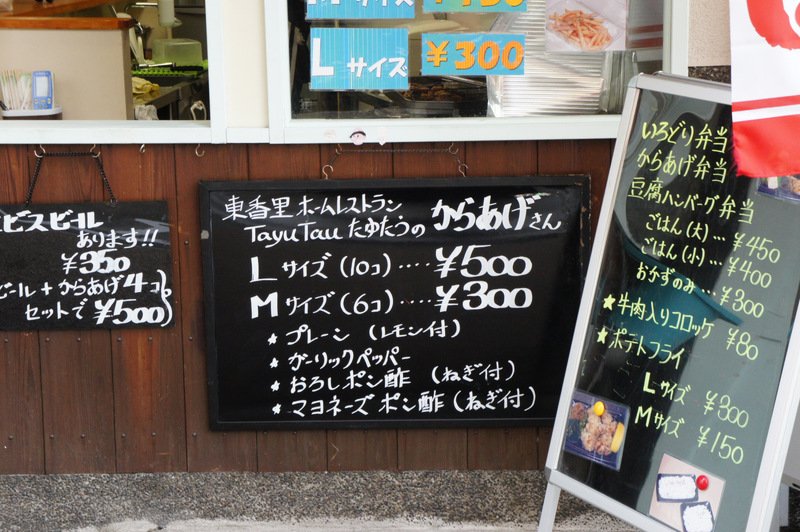 Lサイズ
¥300
ビスビール
あります!!
¥350
ビール+からあげ4コ
セットで ¥500
東香里 ホームレストラン
TayuTau たゆたうの からあげさん
L サイズ (10コ) ‥‥ ¥500
M サイズ (6コ) ‥‥ ¥300
★ プレーン (レモン付)
★ ガーリックペッパー
★ おろしポン酢 (ねぎ付)
★ マヨネーズ ポン酢 (ねぎ付)
いろどり弁当
からあげ弁当
豆腐ハンバーグ弁当
ごはん(大)… ¥450
ごはん(小)… ¥400
おかずのみ… ¥300
★牛肉入りコロッケ ¥80
★ポテトフライ
Lサイズ ¥300
Mサイズ ¥150